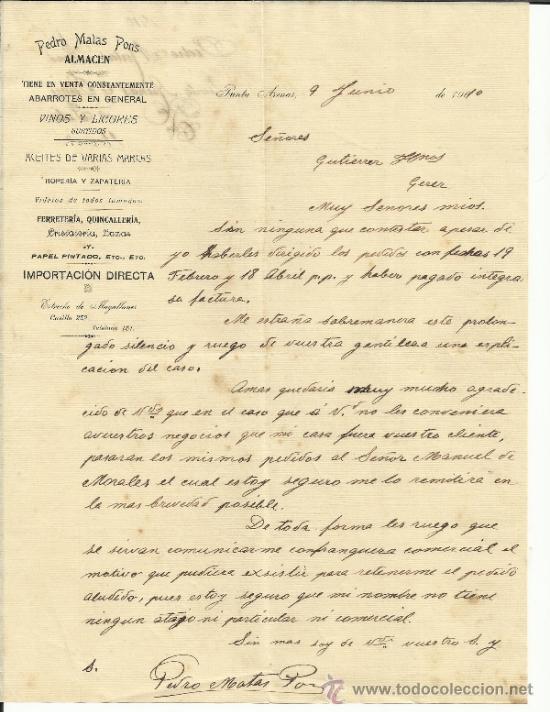 Pedro Matas Pons
ALMACEN
TIENE EN VENTA CONSTANTEMENTE
ABARROTES EN GENERAL
VINOS Y LICORES
SURTIDOS
ACEITES DE VARIAS MARCAS
ROPERÍA Y ZAPATERÍA
Vidrios de todos tamaños
FERRETERÍA, QUINCALLERÍA,
Cristalería, Lozas
Y
PAPEL PINTADO, ETC., ETC.
IMPORTACIÓN DIRECTA
Estrecho de Magallanes
Casilla 259
Teléfono 151.
Punta Arenas, 9 Junio de 1910
Señores
Gutierrez Hnos
Gerez
Muy Señores mios.
Sin ninguna que contestar apesar de
yo haberles dirigido los pedidos con fechas 19
Febrero y 18 Abril p.p. y haber pagado integra
su factura,
Me estraña sobremanera este prolon
gado silencio y ruego de vuestra gentileza una espli
cacion del caso.
Amas quedaria muy mucho agrade
cido de Vds que en el caso que á Vs no les conveniera
avuestros negocios que mi casa fuera vuestro cliente,
pasaran los mismos pedidos al Señor Manuel de
Morales el cual estoy seguro me lo remitirá en
la mas brevedad posible.
De toda forma les ruego que
se sirvan comunicarme confranquera comercial el
motivo que pudiera exsistir para retenerme el pedido
aludido, pues estoy seguro que mi nombre no tiene
ningun atajo ni particular ni comercial.
Sin mas soy de Vds vuestro S. y
S.
Pedro Matas Pons
www.todocoleccion.net